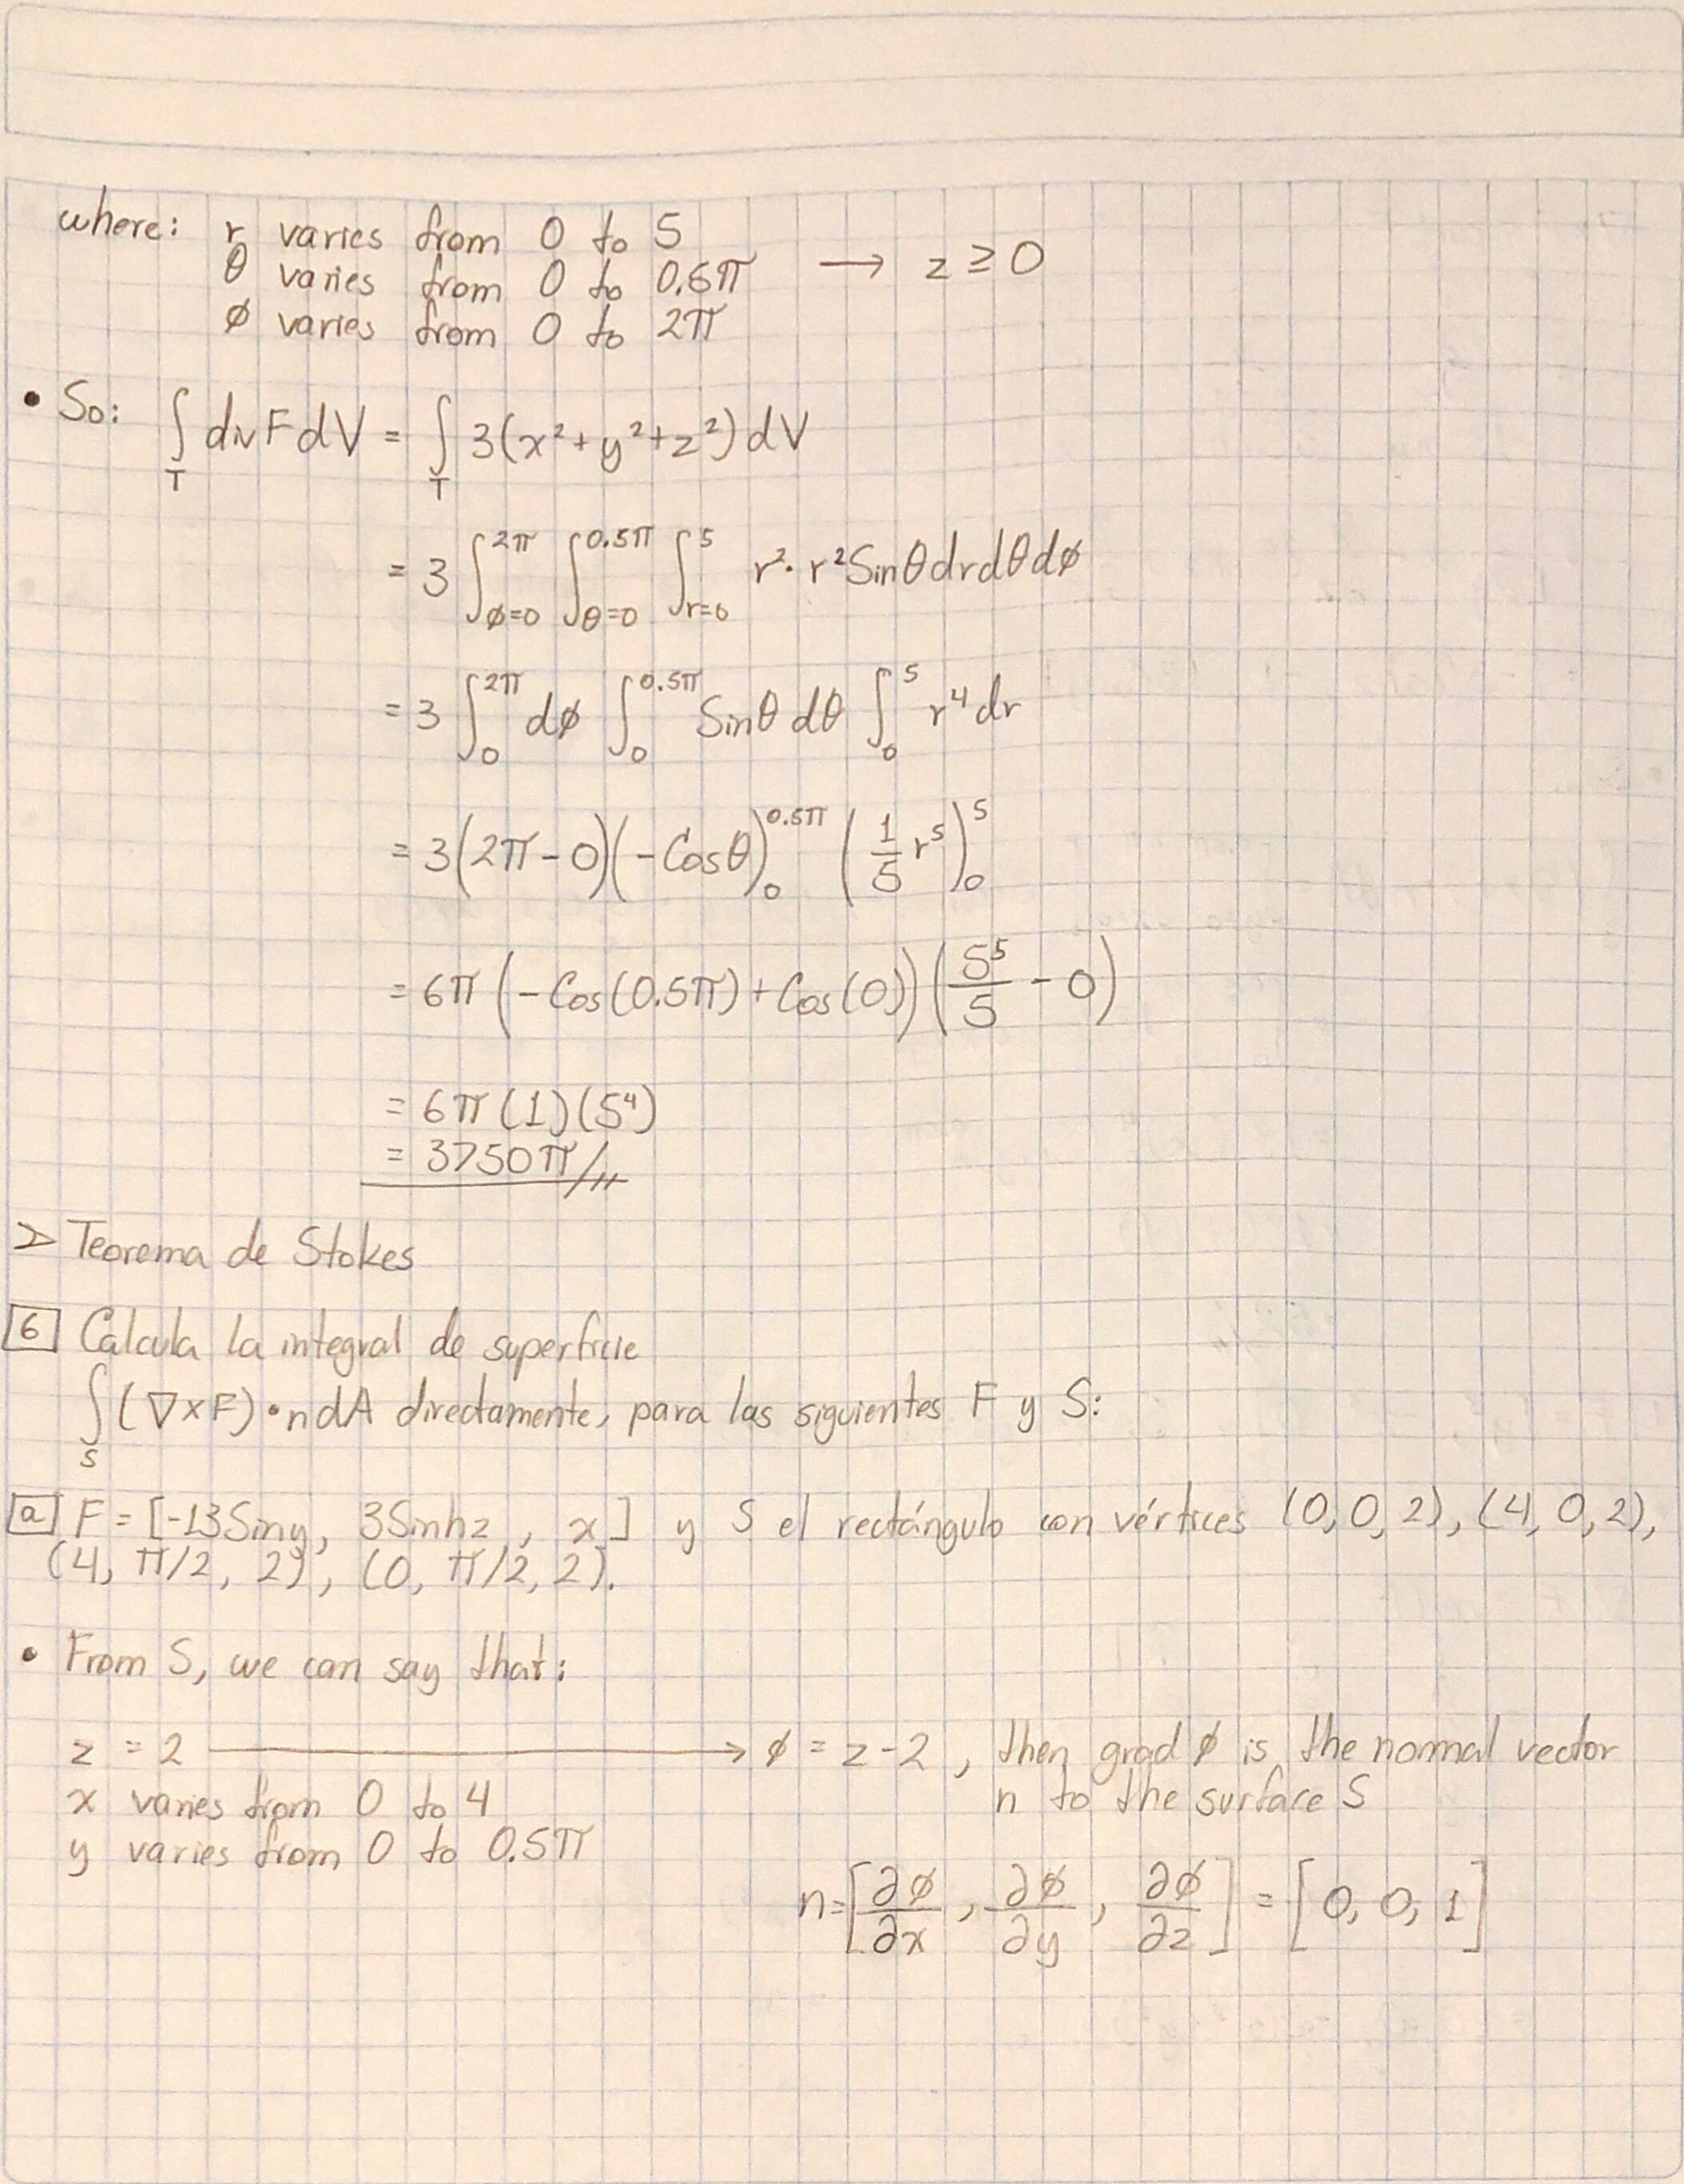 where: r varies from 0 to 5
θ varies from 0 to 0.5π → z ≥ 0
ø varies from 0 to 2π
• So: ∫_T div F dV = ∫_T 3(x² + y² + z²) dV
= 3 ∫_{ø=0}^{2π} ∫_{θ=0}^{0.5π} ∫_{r=0}^{5} r² · r² Sinθ dr dθ dø
= 3 ∫_0^{2π} dø ∫_0^{0.5π} Sinθ dθ ∫_0^5 r⁴ dr
= 3(2π - 0)(-Cosθ)_0^{0.5π} (1/5 r⁵)_0^5
= 6π (-Cos(0.5π) + Cos(0)) (5⁵/5 - 0)
= 6π (1)(5⁴)
= 3750π //,,
> Teorema de Stokes
6 Calcula la integral de superficie
∫_S (∇×F) • n dA directamente, para las siguientes F y S:
a F = [-13Siny, 3Sinhz, x] y S el rectángulo con vértices (0, 0, 2), (4, 0, 2),
(4, π/2, 2), (0, π/2, 2).
• From S, we can say that:
z = 2 → ø = z - 2, then grad ø is the normal vector
n to the surface S
x varies from 0 to 4
y varies from 0 to 0.5π
n = [∂ø/∂x, ∂ø/∂y, ∂ø/∂z] = [0, 0, 1]